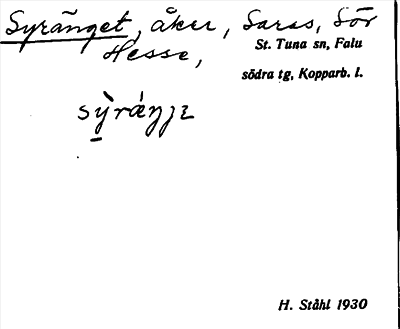 Syränget, åker, Saras, Sör
Hesse,
St. Tuna sn, Falu
södra tg, Kopparb. l.
H. Ståhl 1930